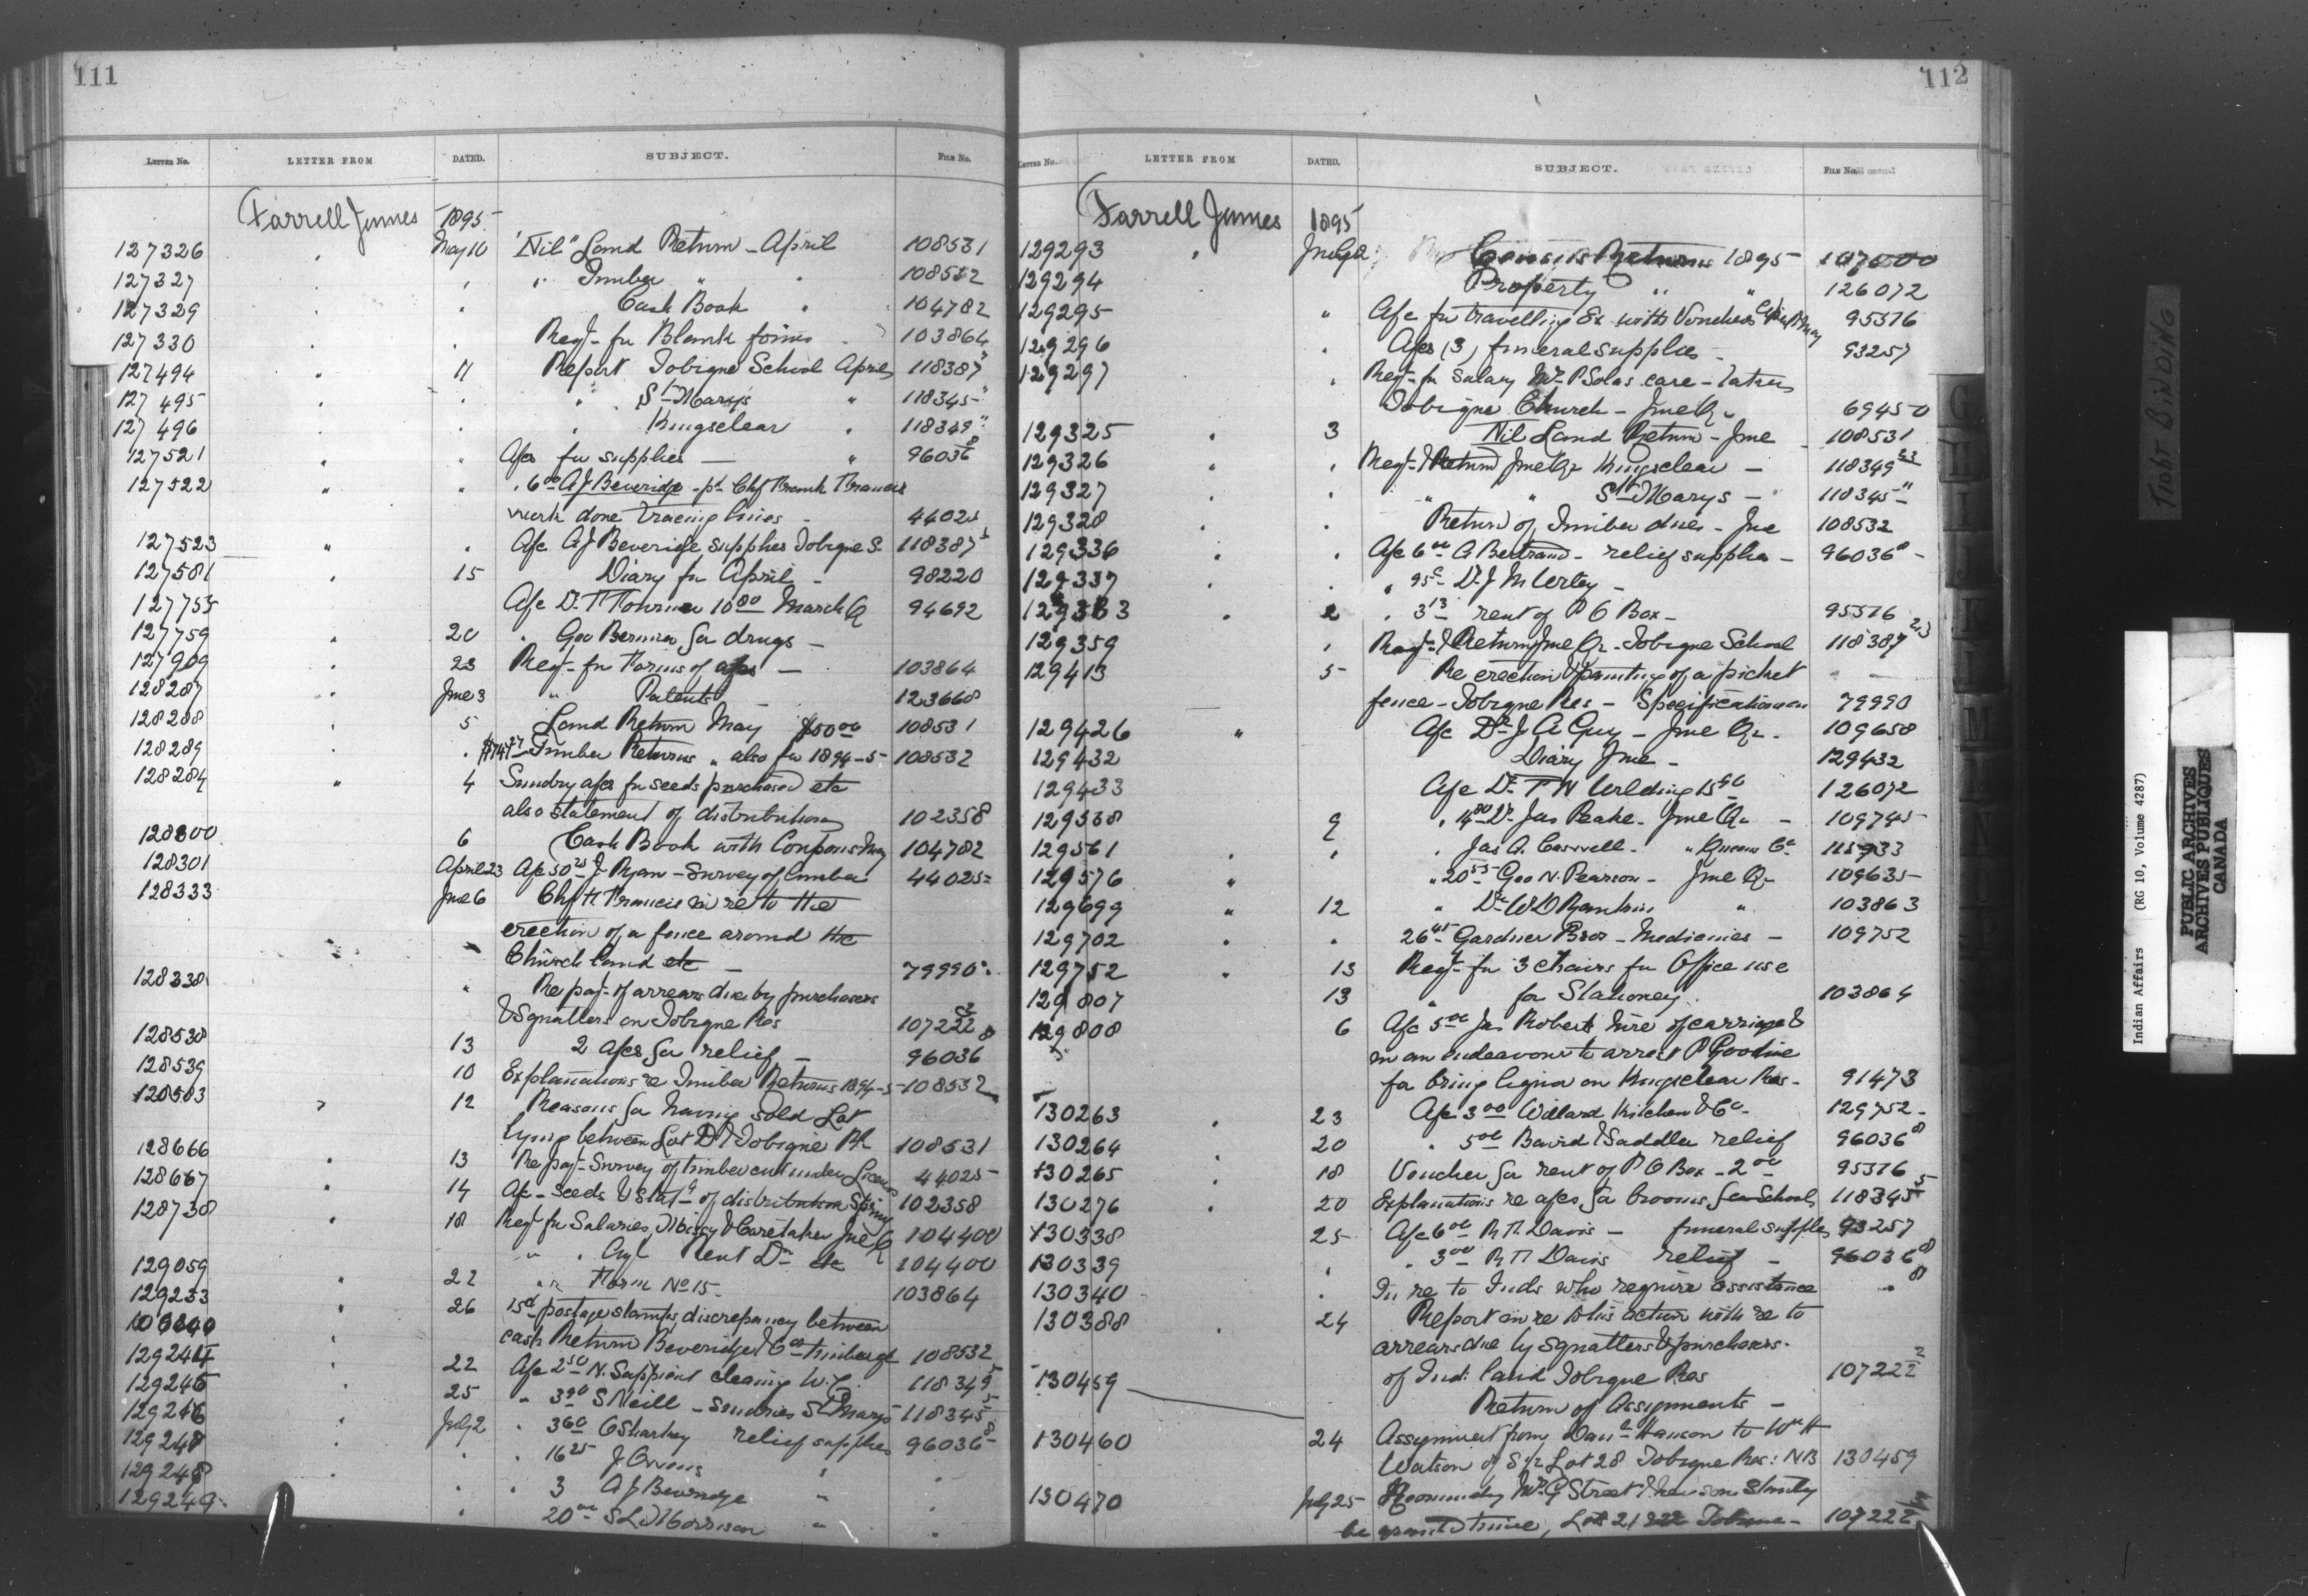 111
LETTER NO. LETTER FROM DATED. SUBJECT. FILE NO.
Farrell James 1895
127326 " May 10 "Nil" Land Return - April 108531
127327 " " " Timber " " 108532
127329 " " Cash Book " 104782
127330 " " Reqt. for Blank forms 103864
127494 " 11 Report Tobique School April 118387
127495 " " " St Marys " 118345
127496 " " " Kingsclear " 118349
127521 " " A/cs for supplies — " 96036 8
127522 " " " 6 00 A J Beveridge - pd Chf Frank Francis
work done tracing lines - 44025
127523 " " A/c A J Beveridge supplies Tobique S. 118387 5
127581 " 15 Diary for April - 98220
127755 A/c Dr. 10 80 March Q 94692
127759 " 20 " Geo Bernier for drugs -
127909 " 23 Reqt - for Forms of a/cs — 103864
128287 " June 3 " Patents 123668
128288 " 5 Land Return May $50 00 108531
128289 " Timber Returns " also for 1894-5 108532
128284 " 4 Sundry a/cs for seeds purchased etc
also statement of distribution 102358
128300 6 Cash Book with Coupons May 104782
128301 April 23 A/c 50 25 J Ryan - Survey of timber 44025
128333 June 6 Chf F Francis in re to the
erection of a fence around the
Church land etc — 79990
128338 " Re pay- of arrears due by purchasers
& Squatters on Tobique Res 107222 2
128538 13 2 A/cs for relief — 96036 8
128539 10 Explanations re Timber Returns 1894-5 108532
128583 12 Reasons for having sold Lot
lying between Lot D & Tobique Rl. 108531
128666 " 13 Re pay- Survey of timber cut under Licence 44025
128667 " 14 A/c - Seeds & Stat. of distribution Spring 102358
128738 " 18 Reqt for Salaries, Missy & Caretaker June Q 104400
" " Agl Rent Dr etc 104400
129059 " 22 " " Form No 15 - 103864
129233 " 26 15 postage stamps, discrepancy between
cash Return Beveridge & Co timber 108532
129245 22 A/c 2 50 N. Sappient cleaning W.C. 118349 5
129246 25 " 3 90 S Neill - Sundries St Marys 118345 5
129248 July 2 " 3 60 O Sharkey relief supplies 96036 8
129248 " " 16 25 J Owens " "
129249 " " 3 A J Beveridge " "
" 20 00 S L Morrison " "
112
LETTER NO. LETTER FROM DATED. SUBJECT. FILE NO.
Farrell James 1895
129293 " July 2 Census Returns 1895 107000
129294 Property " " 126072
129295 " A/c for travelling Ex with Vouchers April & May 95376
129296 " A/cs (3) funeral supplies - 93257
129297 " Reqt - for Salary Mr. P Solas care-taker
Tobique Church - June Qr 69450
129325 " 3 Nil Land Return - June 108531
129326 " " Reqt- & Return June Qr Kingsclear — 118349 23
129327 " " " St Marys — 118345 "
129328 " " Return of Timber dues - June 108532
129336 " " A/c 6 00 A Bertrand - relief supplies - 96036 8
129337 " " " 95c
129353 " 2 " 3 13 rent of P O Box - 95376
129359 " Reqt- & Return June Qr - Tobique School 118387 23
129413 5 Re erection & painting of a picket
fence - Tobique Res - Specification 79990
129426 " A/c Dr. J A Guy - June Qr. 109658
129432 Diary June - 129432
129433 A/c Dr. T W 15 126072
129538 9 " Dr. Jas Peake - June Qr - 109745
129561 " " " Jas A. Casswell - " Queens Co 115933
129576 " " 20 55 Geo N. Pearson - June Qr 109635
129699 " 12 " Dr W D Rankin " 103863
129702 " " 26 45 Gardner Bros - Medicines — 109752
129752 " 13 Reqt - for 3 chairs for Office use
129807 13 " for Stationery 103864
129808 6 A/c 5 00 Jas Robert hire of carriage &
in an endeavour to arrest P Goodine
for bring liquor on Kingsclear Res - 91473
130263 " 23 A/c 3 00 Willard Kitchen & Co - 129752
130264 " 20 " 5 00 Baird & Saddler relief 96036 8
130265 " 18 Voucher for rent of P O Box - 2 00 95376
130276 " 20 Explanations re a/cs for brooms for School 118345 5
130338 25 A/c 6 00 R H Davis — funeral supplies 93257
130339 " " 3 00 R H Davis relief - 96036 8
130340 " In re to Inds who require assistance " 8
130388 " 24 Report in re to his action with re to
arrears due by squatters & purchasers
of Ind: land Tobique Res 107222 2
130459 Return of Assignments —
130460 24 Assignment from Danl Hanson to Wm H
Watson of S 1/2 Lot 28 Tobique Res: NB 130459
130470 July 25 Recommends Mr. G Street & her son Stanley
be granted time, Lot 21 & 22 Tobique - 107222
Tight Binding
Indian Affairs (RG 10, Volume 4287)
PUBLIC ARCHIVES
ARCHIVES PUBLIQUES
CANADA